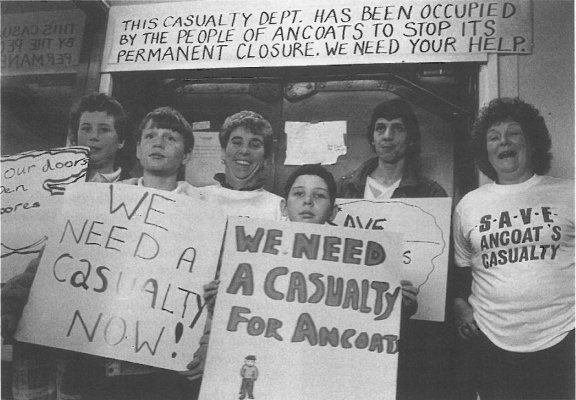 THIS CASUALTY DEPT. HAS BEEN OCCUPIED
BY THE PEOPLE OF ANCOATS TO STOP ITS
PERMANENT CLOSURE. WE NEED YOUR HELP.
THIS CASU
BY THE PEO
PERMANE
OUR dooRS
Den
WE
NEED A
CaSUALTY
NOW!
WE NEED
A CASUALTY
FoR ANCOATS
S·A·V·E
ANCOAT'S
CASUALTY